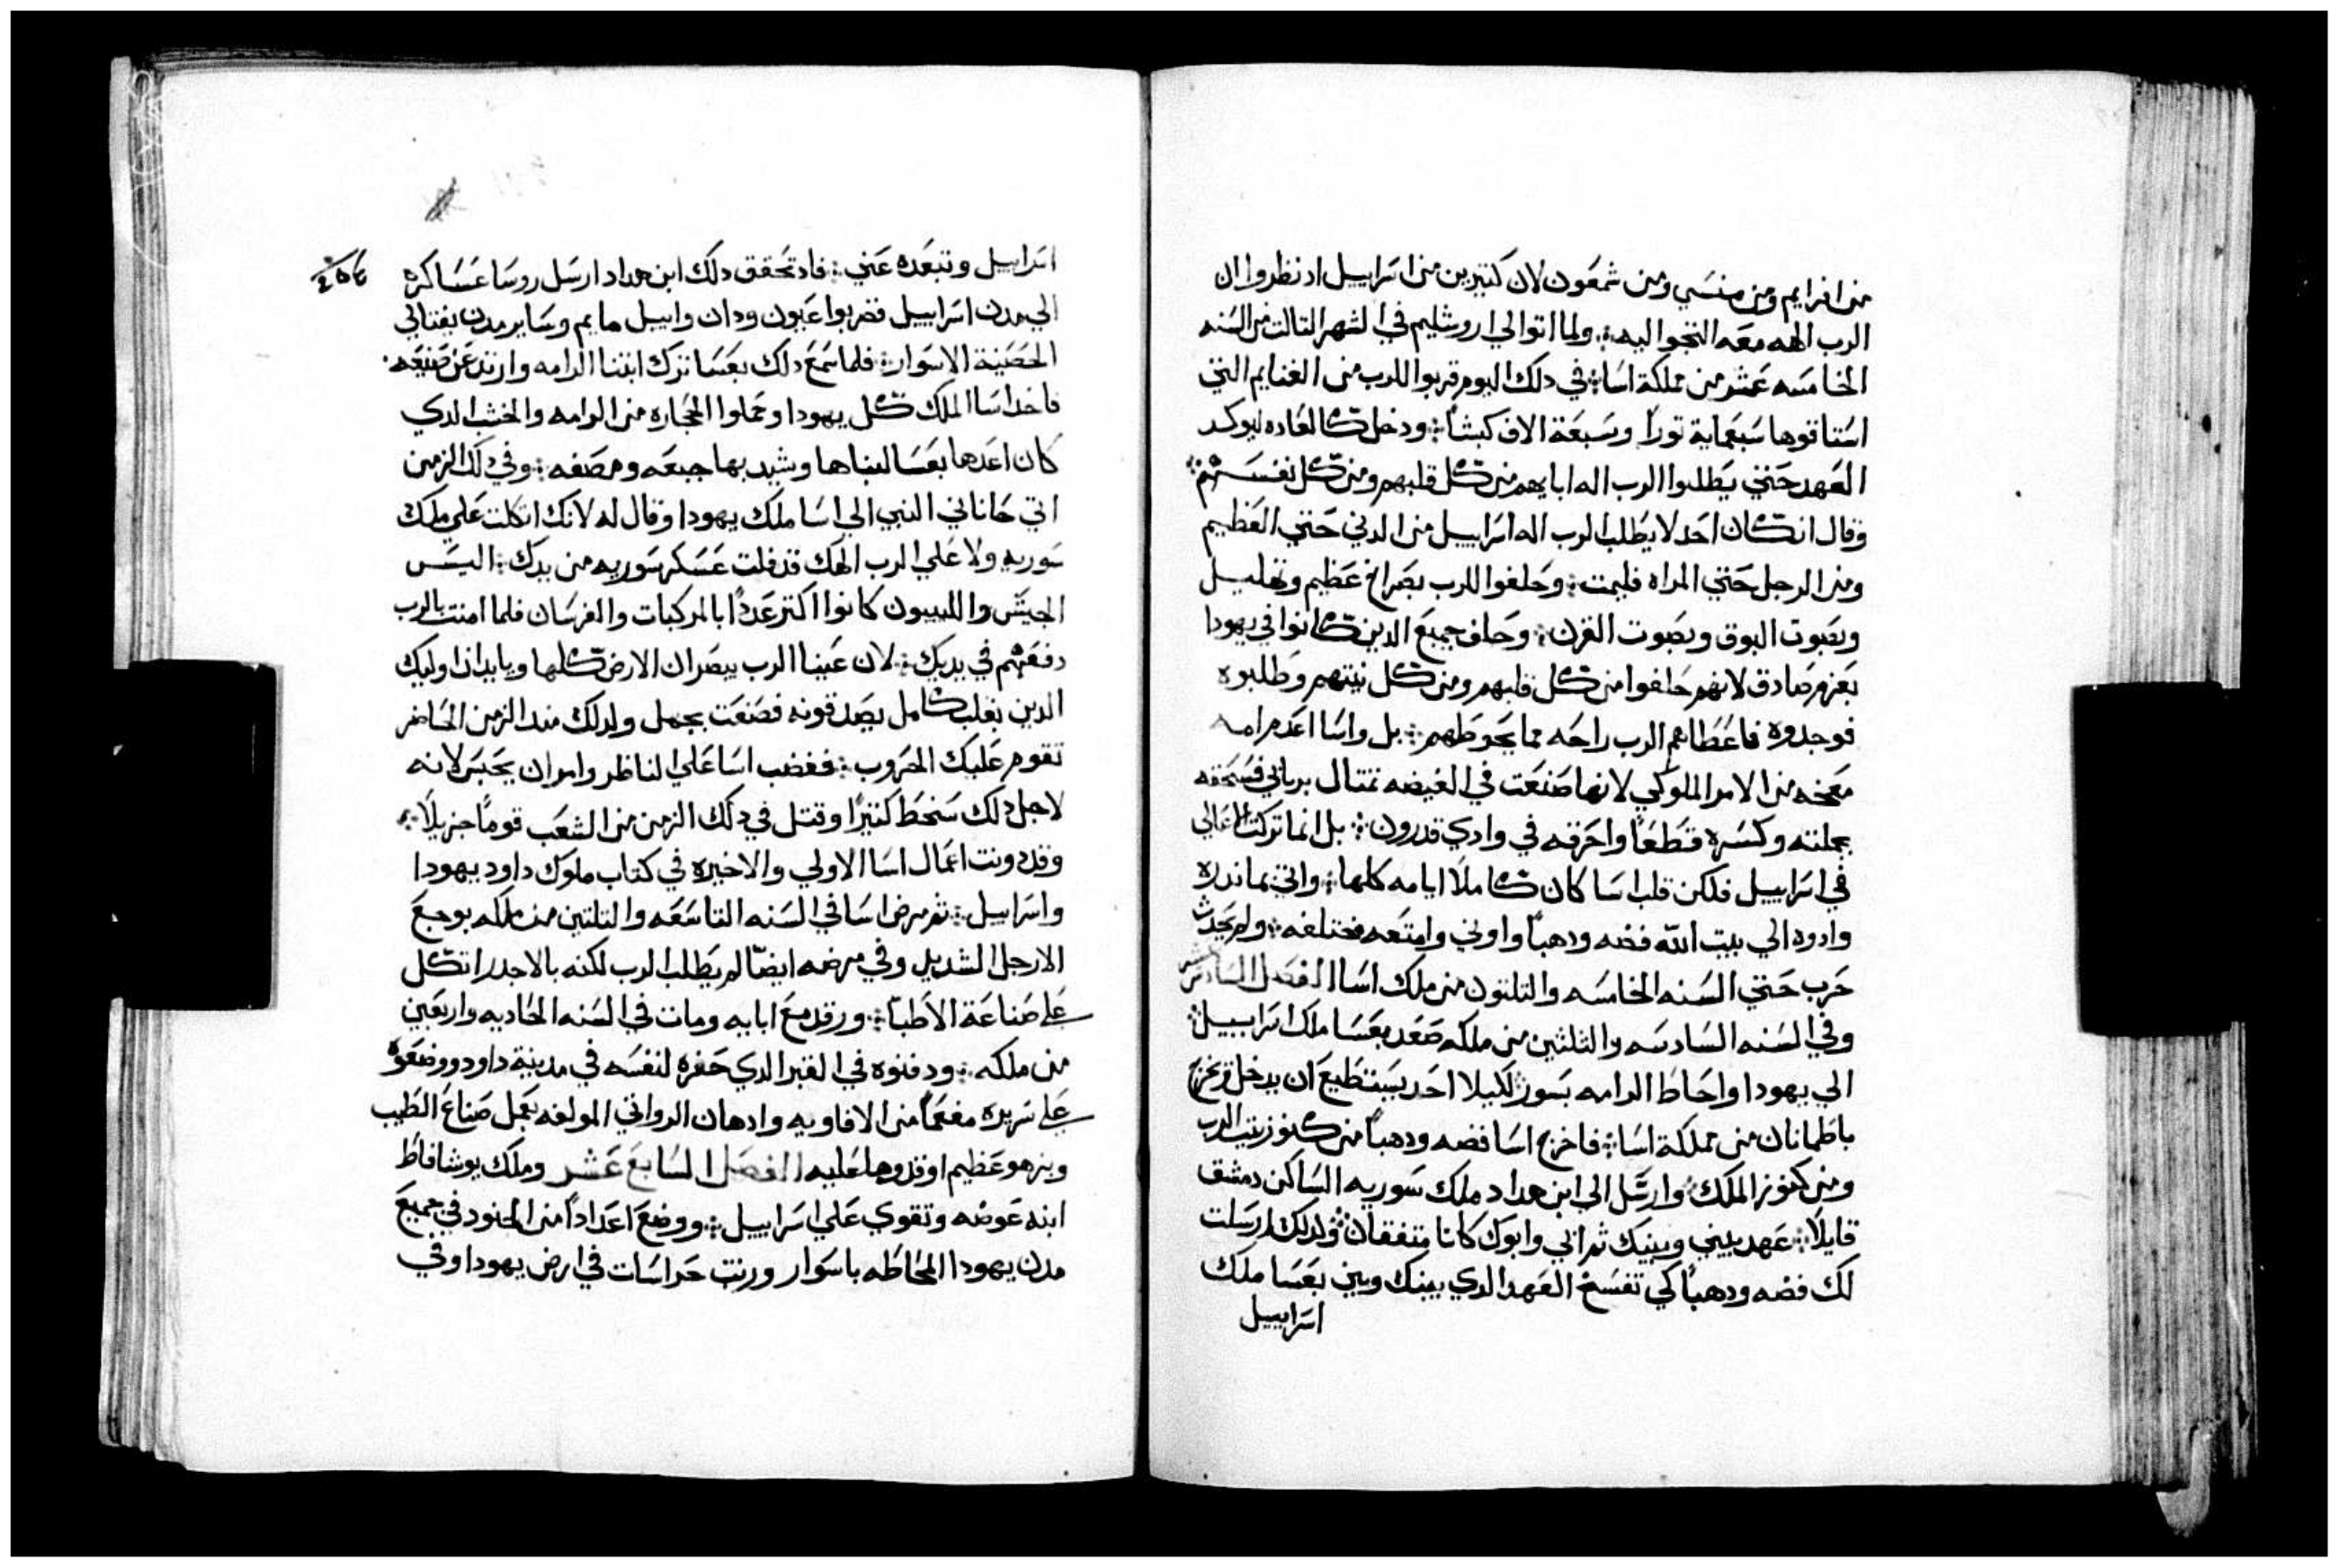 من افرايم ومن منسي ومن شمعون لان كتيرين من اسراييل اد نظروا ان
الرب الهه معه التجوا اليه ܀ ولما اتوا الي اروشليم في الشهر التالت من السنه
الخامسه عشر من مملكة اسا ܀ في دلك اليوم قربوا للرب من الغنايم التي
استاقوها سبعماية توراً وسبعة الاف كبشاً ܀ ودخل كالعاده ليوكد
العهد حتي يطلبوا الرب اله ابايهم من كل قلبهم ومن كل نفسهم ܀
وقال ان كان احد لا يطلب الرب اله اسراييل من الدني حتي العظيم
ومن الرجل حتي المراه فليمت ܀ وحلفوا للرب بصراخ عظيم وتهليل
وبصوت البوق وبصوت القرن ܀ وحلف جميع الدين كانوا في يهودا
بعزم صادق لانهم حلفوا من كل قلبهم ومن كل نيتهم وطلبوه
فوجدوه فاعطاهم الرب راحه مما يحوطهم ܀ بل واسا اعدم امه
معخه من الامر الملوكي لانها صنعت في الغيضه تمتال برياني فسحقه
بجملته وكسره قطعاً واحرقه في وادي قدرون ܀ بل انما تركت المعالي
في اسراييل فلكن قلب اسا كان كاملاً ايامه كلها ܀ واتي بما ندره
وادوه الي بيت الله فضه ودهباً واوني وامتعه مختلفه ܀ ولم يحدث
حرب حتي السنه الخامسه والتلتون من ملك اسا الفصل السادس عشر
وفي السنه السادسه والثلثين من ملكه صعد بعسا ملك اسراييل ܀
الي يهودا واحاط الرامه بسور لكيلا احد يستطيع ان يدخل ويخرج
باطمانان من مملكة اسا ܀ فاخرج اسا فضه ودهباً من كنوز بيت الرب
ومن كنوز الملك وارسل الي ابن هداد ملك سوريه الساكن دمشق
قايلاً ܀ عهد بيني وبينك ثم ابي وابوك كانا متفقان ܀ ولدلك ارسلت
لك فضه ودهباً كي تفسخ العهد الدي بينك وبين بعسا ملك
اسراييل
اسراييل وتبعده عني ܀ فاد تحقق دلك ابن هداد ارسل روسا عساكره
الي مدن اسراييل فضربوا عيون ودان وابيل مايم وساير مدن نفتالي
الحصينة الاسوار ܀ فلما سمع دلك بعسا ترك ابتنا الرامه وارتد عن صنيعه
فاخد اسا الملك كل يهودا وحملوا الحجاره من الرامه والخشب الدي
كان اعدها بعسا لبناها وشيد بها جبعه ومصفه ܀ وفي دلك الزمن
اتي حاناني النبي الي اسا ملك يهودا وقال له لانك اتكلت علي ملك
سوريه ولا علي الرب الهك قد فلت عسكر سوريه من يدك ܀ اليس
الجيش والليبيون كانوا اكتر عدداً بالمركبات والفرسان فلما امنت بالرب
دفعهم في يديك ܀ لان عينا الرب يبصران الارض كلها ويايدان اوليك
الدين بقلب كامل يصدقونه فصنعت بجهل ولدلك مند الزمن الحاضر
تقوم عليك الحروب ܀ فغضب اسا علي الناظر وامر ان يحبس لانه
لاجل دلك سخط كتيراً وقتل في دلك الزمن من الشعب قوماً جزيلاً ܀
وقد دونت اعمال اسا الاولي والاخيره في كتاب ملوك داود يهودا
واسراييل ܀ ثم مرض اسا في السنه التاسعه والتلتين من ملكه بوجع
الارجل الشديد وفي مرضه ايضاً لم يطلب الرب لكنه بالاجدر اتكل
علي صناعة الاطبا ܀ ورقد مع ابايه ومات في السنه الحاديه واربعين
من ملكه ܀ ودفنوه في القبر الدي حفره لنفسه في مدينة داود ووضعوه
علي سريره مفعماً من الافاويه وادهان الرواني المولفه بعمل صناع الطيب
وبزهو عظيم اوقدوها عليه الفصل السابع عشر وملك يوشافاط
ابنه عوضه وتقوي علي اسراييل ܀ ووضع اعداداً من الجنود في جميع
مدن يهودا المحاطه باسوار ورتب حراسات في ارض يهودا وفي